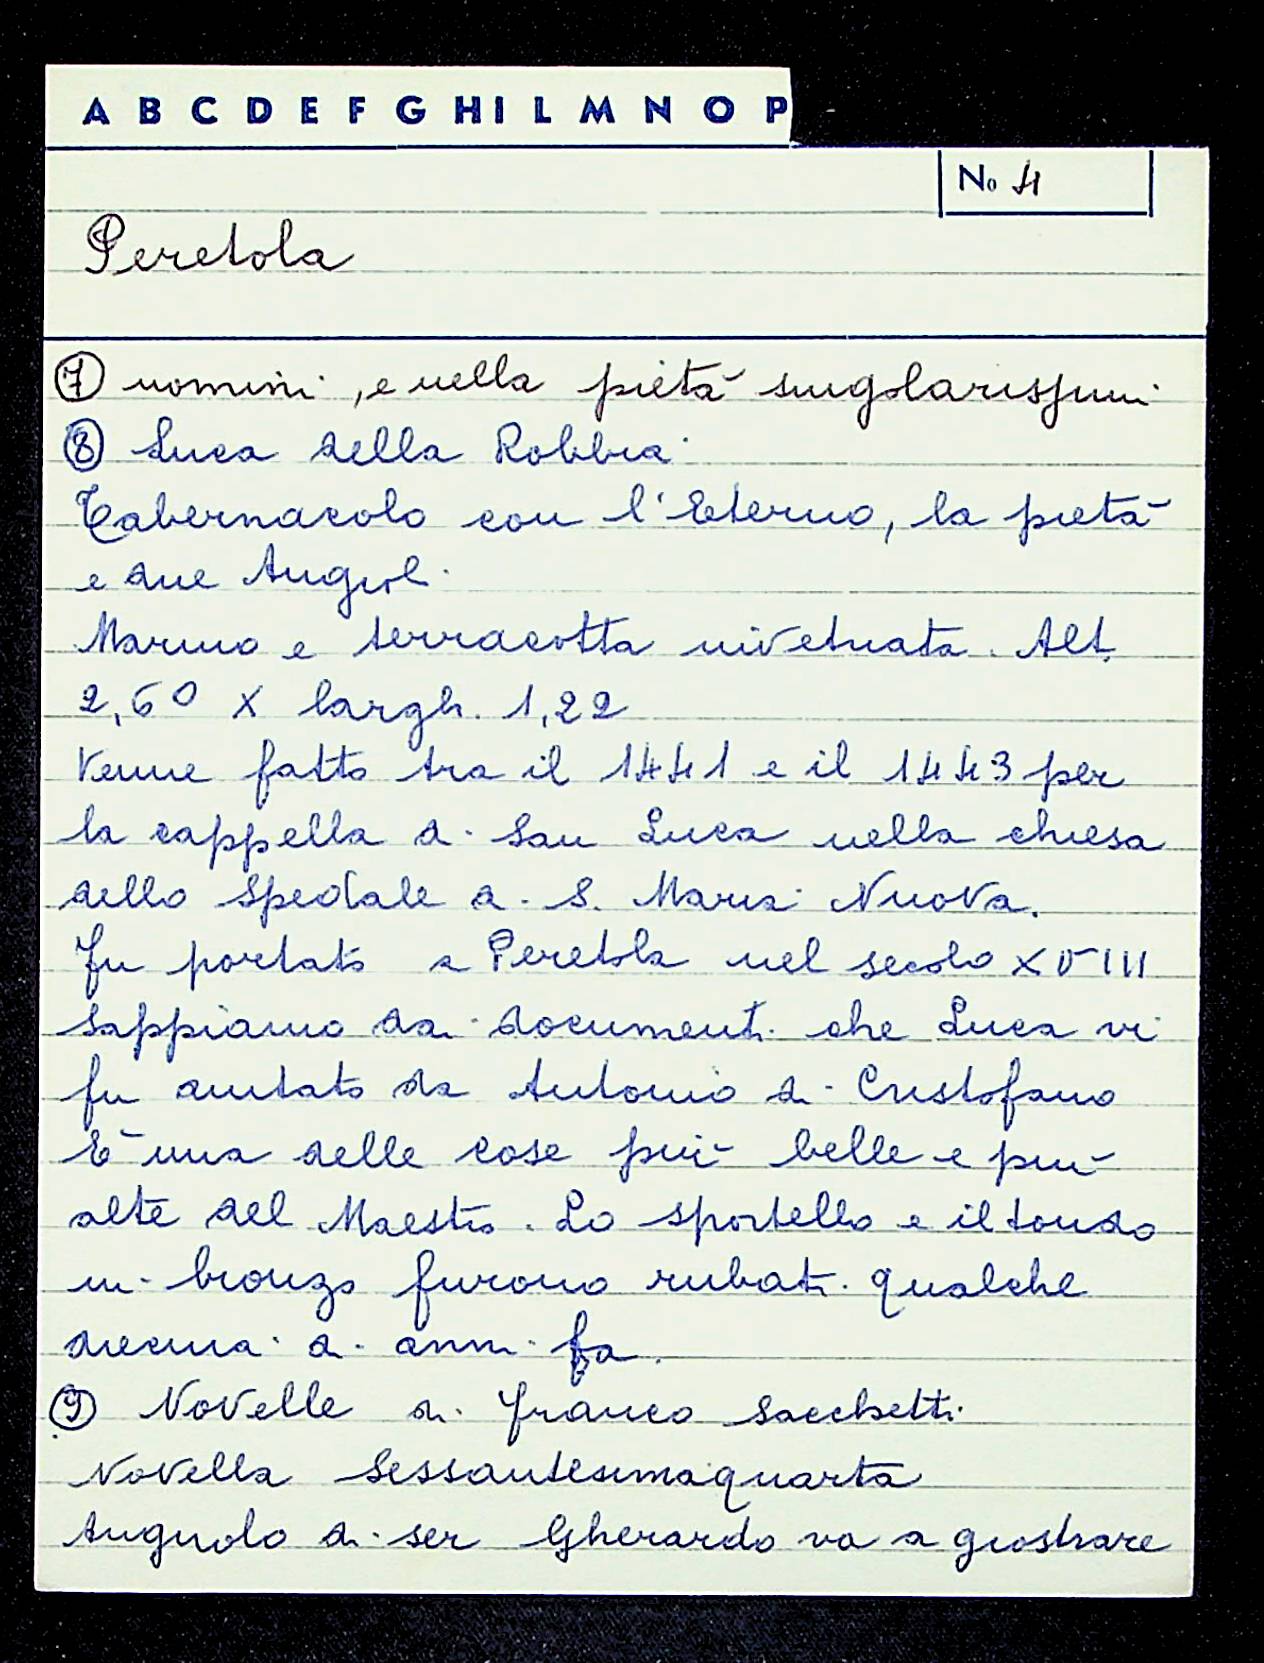 A B C D E F G H I L M N O P
No 4
Peretola
⑦ uomini, e nella pietà singolarissimi
⑧ Luca della Robbia
Tabernacolo con l'Eterno, la pietà
e due Angioli
Marmo e terracotta invetriata. Alt.
2,60 x largh. 1,22
Venne fatto tra il 1441 e il 1443 per
la cappella di San Luca nella chiesa
dello Spedale di S. Maria Nuova.
Fu portato a Peretola nel secolo XVIII
Sappiamo dai documenti che Luca vi
fu aiutato da Antonio di Cristofano
È una delle cose più belle e più
alte del Maestro. Lo sportello e il tondo
in bronzo furono rubati qualche
diecina di anni fa.
⑨ Novelle di Franco Sacchetti
Novella Sessantesimaquarta
Angnolo di ser Gherardo va a giostrare